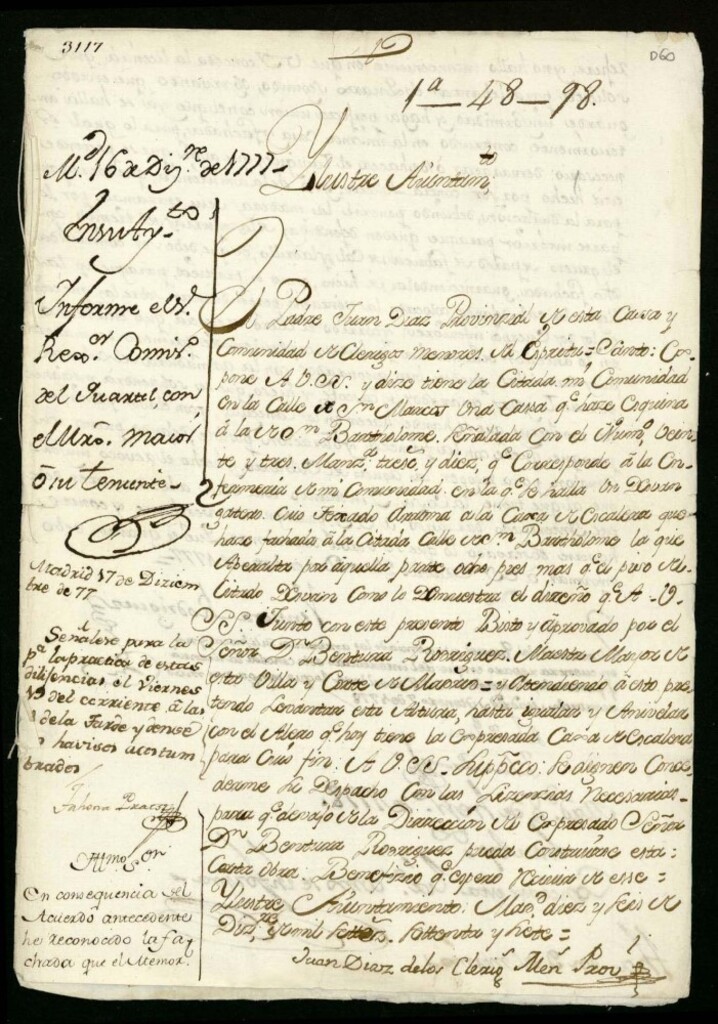 3117
D60
1ª - 48 - 98.
M.d 16 de Diz.re de 1777
Yllustre Aiuntam.to
En su Ay.to
Informe el S.r
Rex.or Comis.º
del Quartel, con
el Mro. maior
ô su teniente
Madrid 17 de Diziem
bre de 77
Señálese para la
p.ª la practica de estas
dilijencias el Viernes
19 del corriente, â las
de la tarde y dense
havisos acostum
brados
Yll.mo S.or
En consequencia del
Acuerdo antecedente
he reconocido la fa
chada que el Memor.
El Padre Juan Diaz Provinzial de esta Cassa y
Comunidad de Clerigos Menores, del Espiritu = Santo: Ex
pone A V.S.Y. y dize tiene la Citada mi Comunidad
en la Calle de S.n Marcos Una Cassa q.e haze Esquina
â la de S.n Bartholome, señalada Con el Num.º Vein
te y tres, Manz.ª tresc.s y diez, q.e Corresponde â la En
fermeria de mi Comunidad, en la q.e se halla Un Desvan
gatero, Cuio texado arrima a la Caxa de Escalera que
haze fachada â la Citada Calle de S.n Bartholome la que
Abentaxa por aquella parte ocho pies mas q.e el piso del
Citado Desvan Como lo Demuestra el diseño q.e A V.
SS. Junto con este presento Visto y aprovado por el
Señor D.n Bentura Rodriguez, Maestro Mayor de
esta Villa y Corte de Madrid = y Atendiendo â esto pre
tendo Levantar esta Altura, hasta igualar y Anivelar
con el Alero q.e hoy tiene la Expresada Caxa de Escalera
para Cuio fin: A V. SS. Supp.co: Se dignen Conce
derme su Despacho Con las Lizencias Necesarias
para q.e devajo de la Direccion del Expresado Señor
D.n Bentura Rodriguez pueda Construirse esta
Corta obra. Benefizio q.e espero Recivir de ese =
Yllustre Aiuntamiento: Mad.d diez y seis de
Diz.re de mil settez.s settenta y siete =
Juan Diaz de los Clerig.s Men.s Prov.l